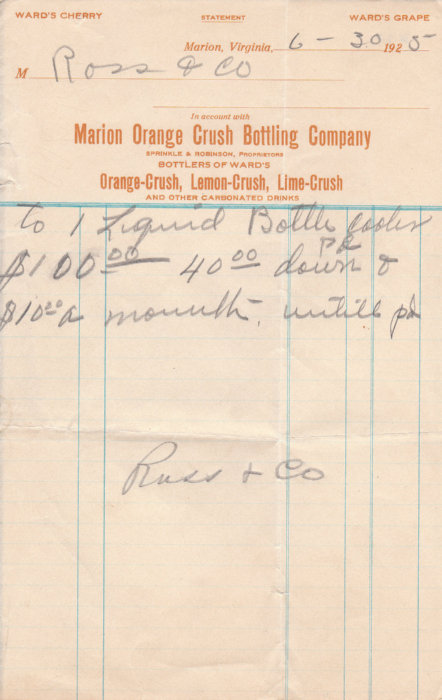 WARD'S CHERRY STATEMENT WARD'S GRAPE
Marion, Virginia, 6 - 30 1925
M Ross & CO
In account with
Marion Orange Crush Bottling Company
SPRINKLE & ROBINSON, PROPRIETORS
BOTTLERS OF WARD'S
Orange-Crush, Lemon-Crush, Lime-Crush
AND OTHER CARBONATED DRINKS
To 1 Liquid Bottle cooler
pd
$100 00 40 00 down &
$10 00 a mounth, untill pd
Ross & Co